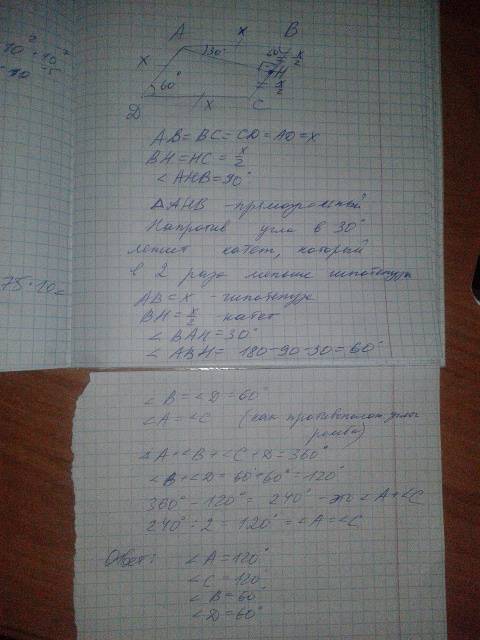 10² · 10⁻⁷
10⁻⁵
A x B
30°
60°
x/2
x
H
60°
x/2
D x C
AB=BC=CD=AD=x
BH=HC=x/2
∠AHB=90°
ΔAHB - прямоугольный
Напротив угла в 30°
лежит катет, который
в 2 раза меньше гипотенузы
75·10=
AB=x - гипотенуза
BH=x/2 катет
∠BAH=30°
∠ABH= 180-90-30=60°
∠B=∠D=60°
∠A=∠C (как противополож углы
ромба)
∠A+∠B+∠C+D=360°
∠B+∠D=60°+60°=120°
360°-120°= 240° - это ∠A+∠C
240°:2=120°=∠A=∠C
Ответ: ∠A=120°
∠C=120°
∠B=60°
∠D=60°